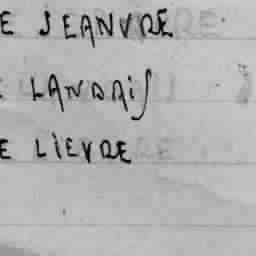 E JEANVRE
E LANDAIS
E LIEVRE